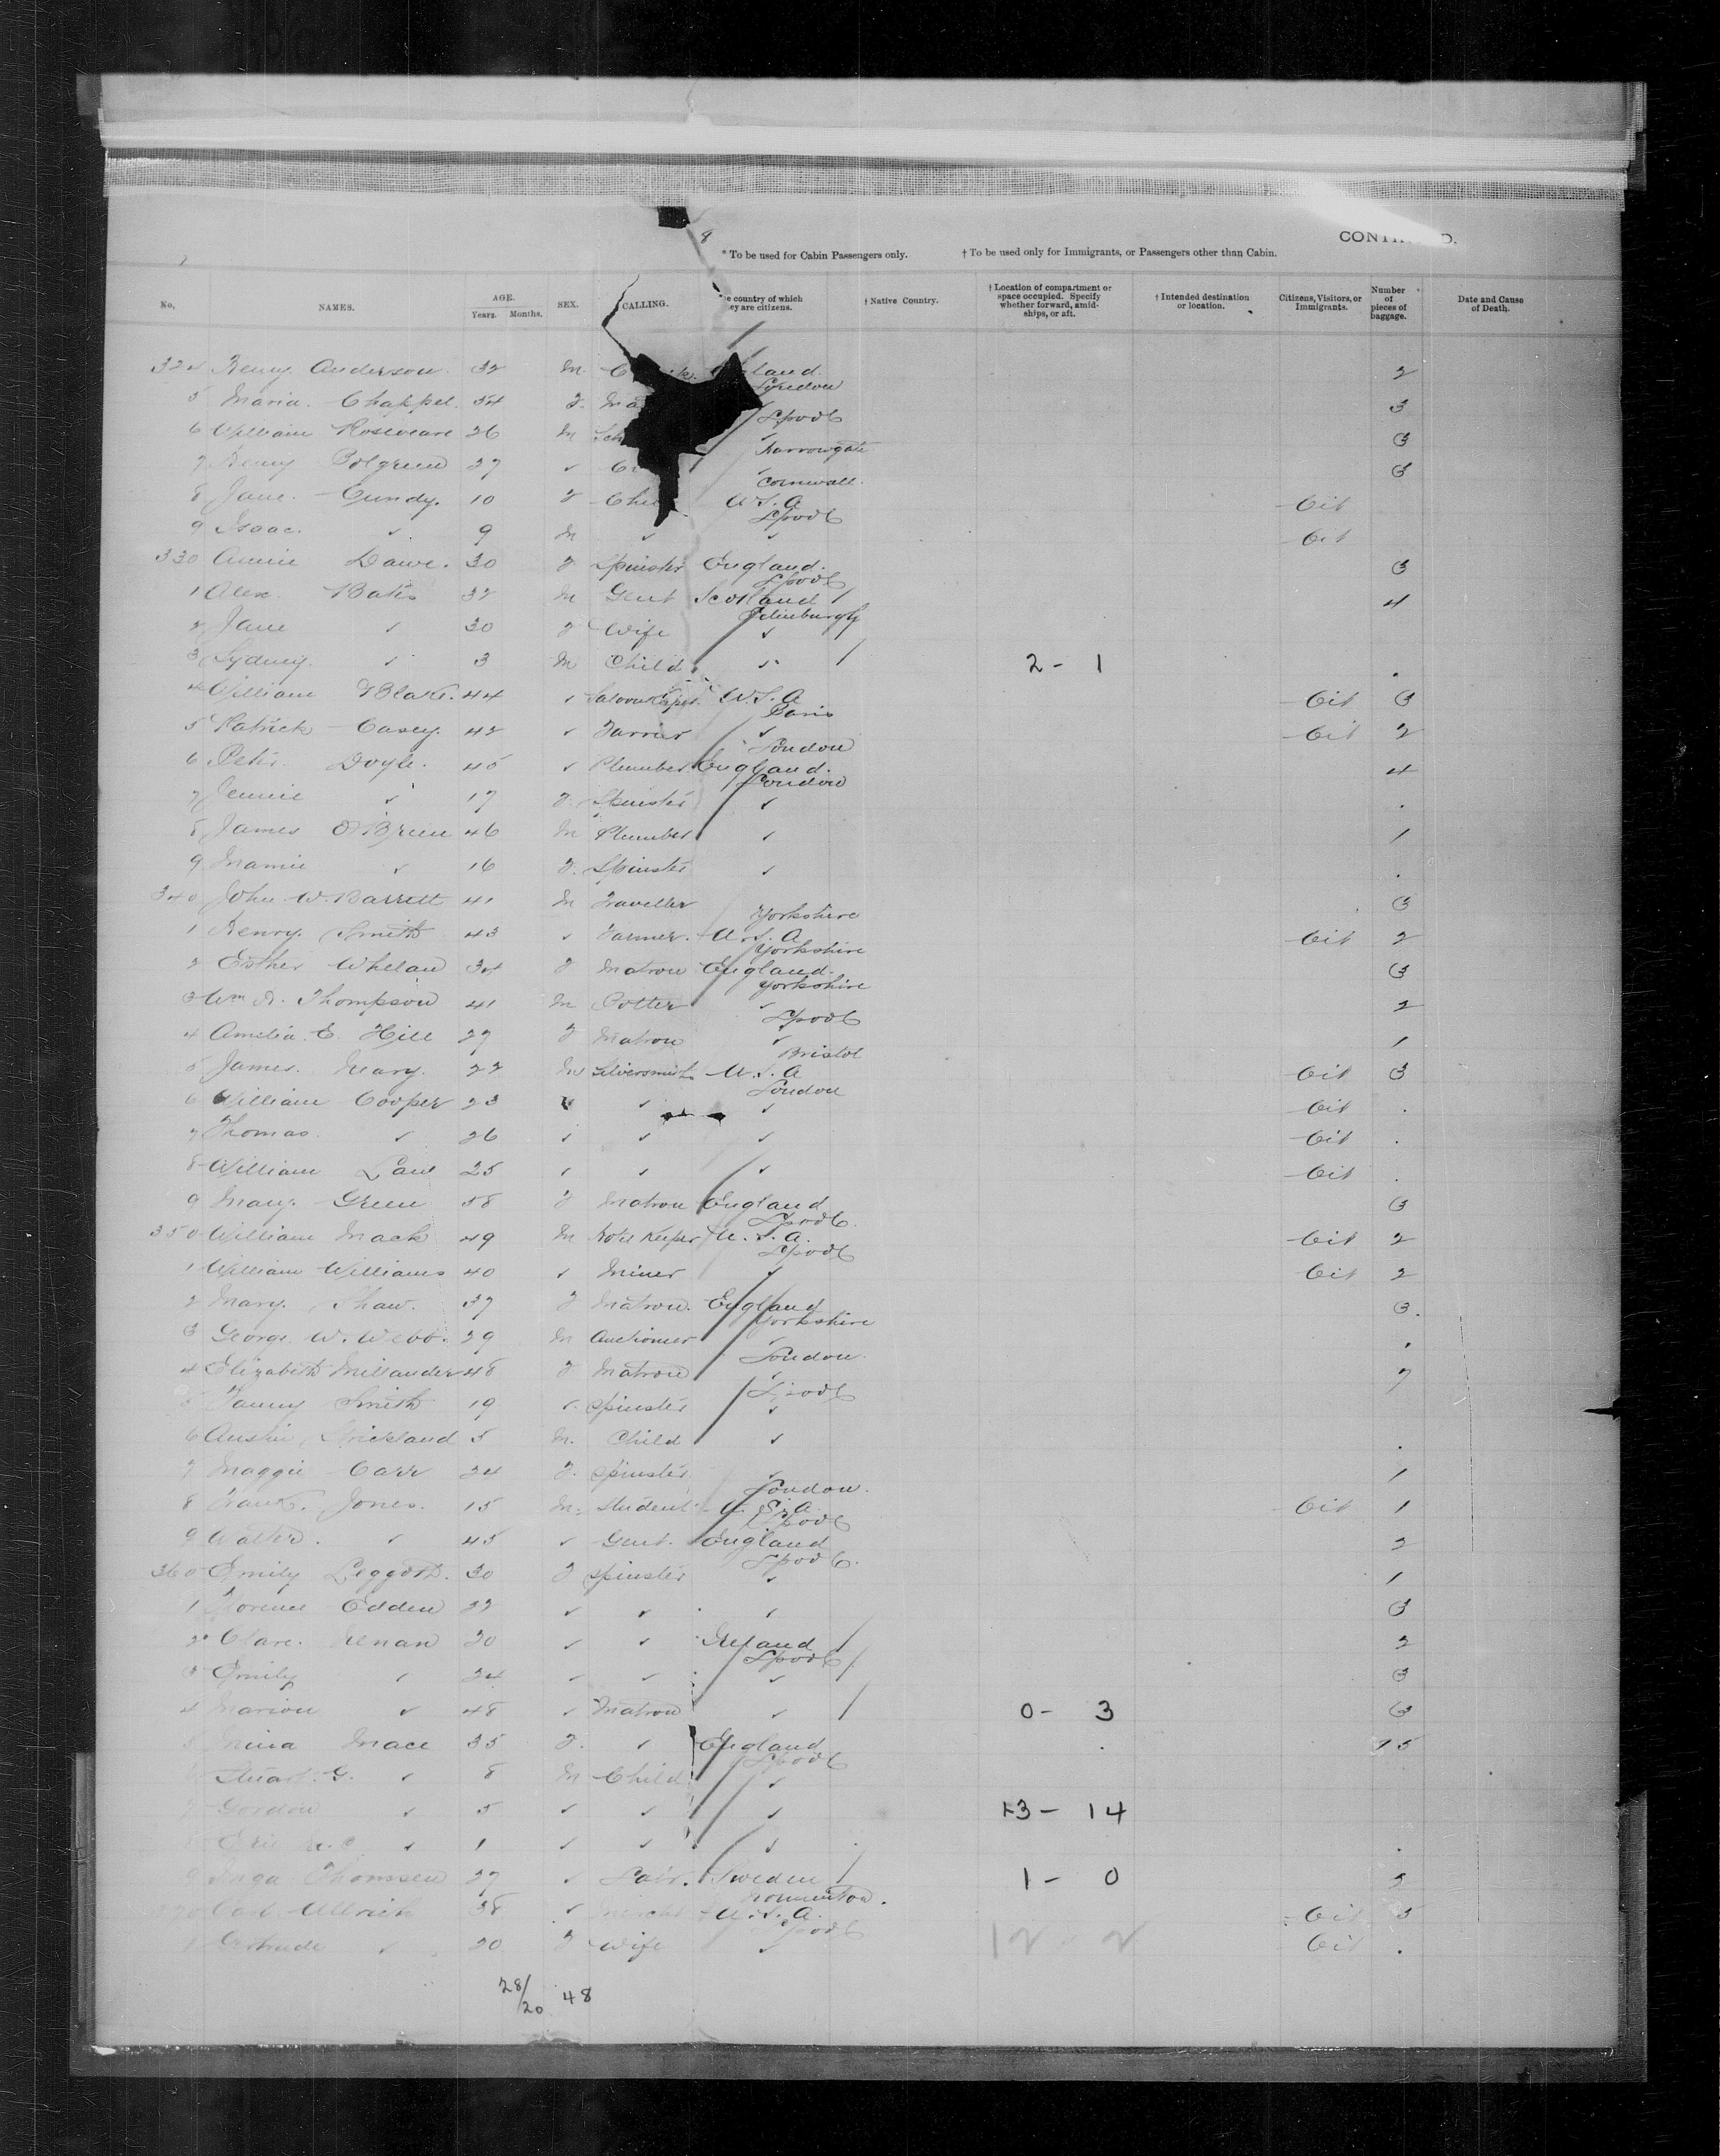 CONTI D.
* To be used for Cabin Passengers only. † To be used only for Immigrants, or Passengers other than Cabin.
No. NAMES. AGE. Years. Months. SEX. CALLING. e country of which ey are citizens. † Native Country. † Location of compartment or space occupied. Specify whether forward, amidships, or aft. † Intended destination or location. Citizens, Visitors, or Immigrants. Number of pieces of baggage. Date and Cause of Death.
324 Henry Anderson 32 M. land. London 2
5 Maria. Chappel. 54 F. Ma Lpool 3
6 William Roseveare 26 M Harrowgate 3
7 Henry Polgreen 37 ✓ ✓ Cornwall. 3
8 Jane. Cundy. 10 F Chi U.S.A Lpool Cit
9 Isaac. ✓ 9 M ✓ ✓ Cit
330 Annie Dawe. 30 F Spinster England. Lpool 3
1 Alex. Bates 32 M Gent Scotland Edinburgh 4
2 Jane ✓ 30 F Wife ✓
3 Sydney. ✓ 3 M Child ✓ 2 - 1
4 William Blake. 44 ✓ U.S.A Paris Cit 3
5 Patrick Casey. 42 ✓ Farrier ✓ London Cit 2
6 Peter Doyle. 45 ✓ Plumber England. London 4
7 Jennie ✓ 17 F. Spinster ✓
8 James O'Brien 46 M Plumber ✓ 1
9 Mamie ✓ 16 F. Spinster ✓
340 John W. Barrett 41 M Traveller Yorkshire 3
1 Henry. Smith 43 ✓ Farmer. U.S.A Yorkshire Cit 2
2 Esther Whelan 34 F Matron England. Yorkshire 3
3 Wm A. Thompson 41 M Potter ✓ Lpool 2
4 Amelia E. Hill 27 F Matron ✓ Bristol 1
5 James. Mary. 22 M Silversmith U.S.A London Cit 3
6 William Cooper 23 ✓ ✓ ✓ Cit
7 Thomas ✓ 26 ✓ ✓ ✓ Cit
8 William Lane 25 ✓ ✓ ✓ Cit
9 Mary. Green 58 F Matron England Lpool. 3
350 William Mack 49 M Hotel Keeper U.S.A. Lpool Cit 2
1 William Williams 40 ✓ Miner ✓ Cit 2
2 Mary. Shaw. 37 F Matron. England Yorkshire 3.
3 George. W. Webb. 29 M Auctioneer ✓ London.
4 Elizabeth 48 F Matron ✓ Lpool 7
5 Fanny Smith 19 ✓ Spinster ✓
6 Austin Strickland 5 M. Child ✓
7 Maggie Carr 24 F. Spinster ✓ London. 1
8 Frank. Jones. 15 M. Student U.S.A. Lpool Cit 1
9 Walter. ✓ 45 ✓ Gent. England Lpool. 2
360 Emily Leggott. 30 F Spinster ✓ 1
1 Florence Edden 22 ✓ ✓ ✓ 3
2 Clare. Kenan 20 ✓ ✓ Ireland Lpool 2
3 Emily ✓ 24 ✓ ✓ ✓ 3
4 Marion ✓ 48 ✓ Matron ✓ 0 - 3 3
5 Mina Mace 35 F. ✓ England Lpool 15
Stuart. G. ✓ 8 M Child ✓
7 Gordon ✓ 5 ✓ ✓ ✓ 13 - 14
✓ 1 ✓ ✓ ✓
9 Inga Thomsen 27 ✓ Labr. Sweden 1 - 0 2
370 Carl Ullrich 38 ✓ Mercht U.S.A. Lpool Cit 5
1 Gertrude ✓ 20 F Wife ✓ 12 - 2 Cit
28/20 48